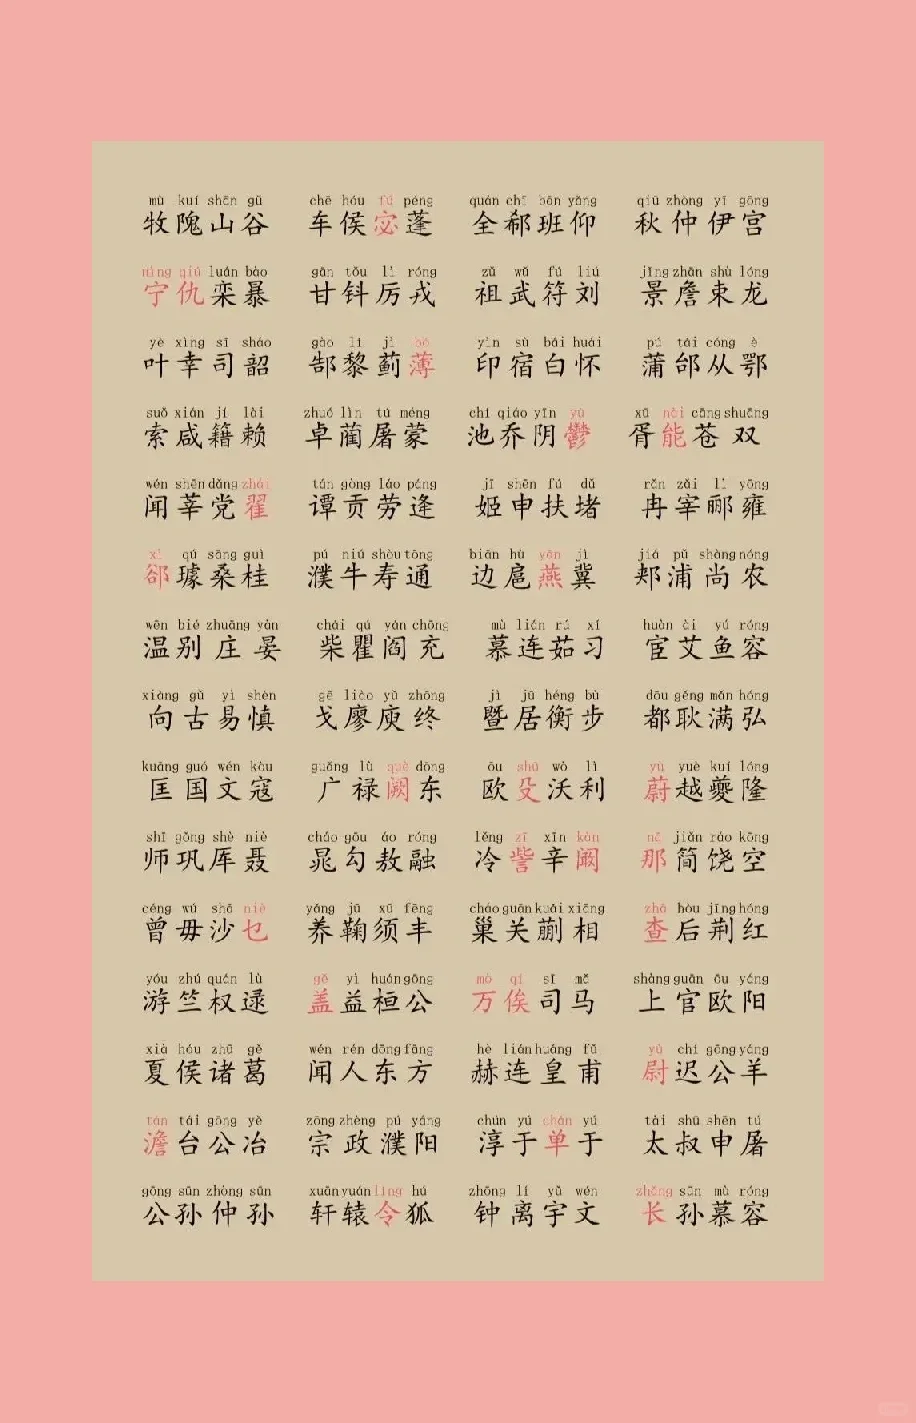 mù kuí shān gǔ chē hóu fú péng quán chī bān yǎng qiū zhòng yī gōng
牧隗山谷 车侯宓蓬 全郗班仰 秋仲伊宫
nìng qiú luán bào gān tǒu lì róng zǔ wǔ fú liú jǐng zhān shù lóng
宁仇栾暴 甘钭厉戎 祖武符刘 景詹束龙
yè xìng sī sháo gào lí jì bó yìn sù bái huái pú tái cóng è
叶幸司韶 郜黎蓟薄 印宿白怀 蒲邰从鄂
suǒ xián jí lài zhuó lìn tú méng chí qiáo yīn yù xū nài cāng shuāng
索咸籍赖 卓蔺屠蒙 池乔阴鬱 胥能苍双
wén shēn dǎng zhái tán gòng láo páng jī shēn fú dǔ rǎn zǎi lì yōng
闻莘党翟 谭贡劳逄 姬申扶堵 冉宰郦雍
xì qú sāng guì pú niú shòu tōng biān hù yān jì jiá pǔ shàng nóng
郤璩桑桂 濮牛寿通 边扈燕冀 郏浦尚农
wēn bié zhuāng yàn chái qú yán chōng mù lián rú xí huàn ài yú róng
温别庄晏 柴瞿阎充 慕连茹习 宦艾鱼容
xiàng gǔ yì shèn gē liào yǔ zhōng jì jū héng bù dōu gěng mǎn hóng
向古易慎 戈廖庾终 暨居衡步 都耿满弘
kuāng guó wén kòu guǎng lù quē dōng ōu shū wò lì yù yuè kuí lóng
匡国文寇 广禄阙东 欧殳沃利 蔚越夔隆
shī gǒng shè niè cháo gōu áo róng lěng zī xīn kàn nā jiǎn ráo kōng
师巩厍聂 晁勾敖融 冷訾辛阚 那简饶空
céng wú shā niè yǎng jū xū fēng cháo guān kuǎi xiāng zhā hòu jīng hóng
曾毋沙乜 养鞠须丰 巢关蒯相 查后荆红
yóu zhú quán lù gě yì huán gōng mò qí sī mǎ shàng guān ōu yáng
游竺权逯 盖益桓公 万俟司马 上官欧阳
xià hóu zhū gě wén rén dōng fāng hè lián huáng fǔ yù chí gōng yáng
夏侯诸葛 闻人东方 赫连皇甫 尉迟公羊
tán tái gōng yě zōng zhèng pú yáng chún yú chán yú tài shū shēn tú
澹台公冶 宗政濮阳 淳于单于 太叔申屠
gōng sūn zhòng sūn xuān yuán líng hú zhōng lí yǔ wén zhǎng sūn mù róng
公孙仲孙 轩辕令狐 钟离宇文 长孙慕容